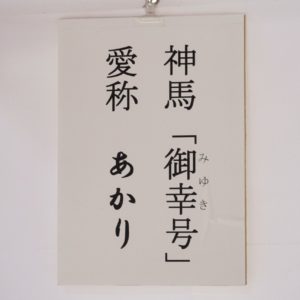 神馬「御幸号」
みゆき
愛称 あかり